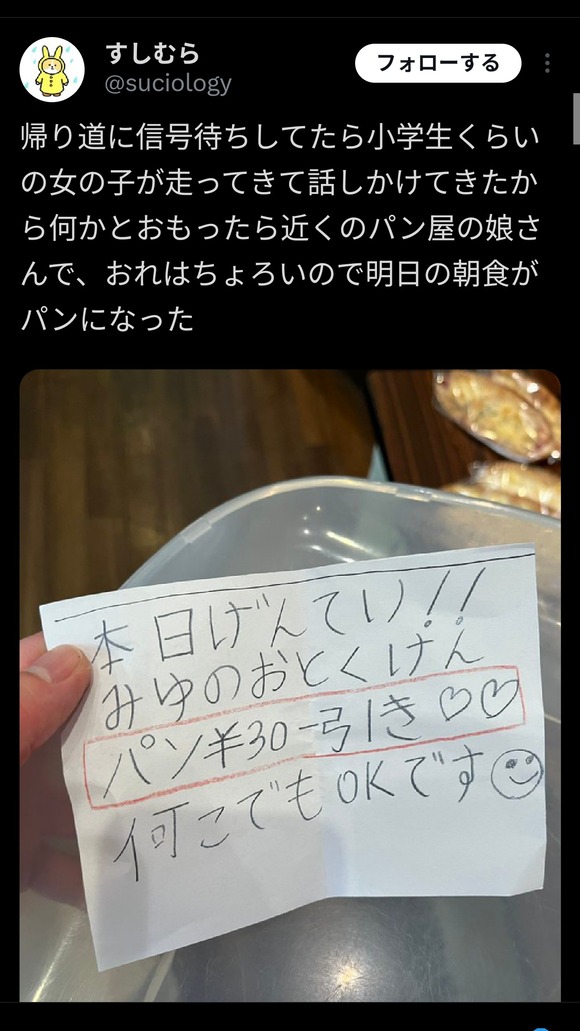 すしむら
フォローする
@suciology
帰り道に信号待ちしてたら小学生くらい
の女の子が走ってきて話しかけてきたか
ら何かとおもったら近くのパン屋の娘さ
んで、おれはちょろいので明日の朝食が
パンになった
本日げんてい!!
みゆのおとくけん
パン¥30-引き♡♡
何こでもOKです☺